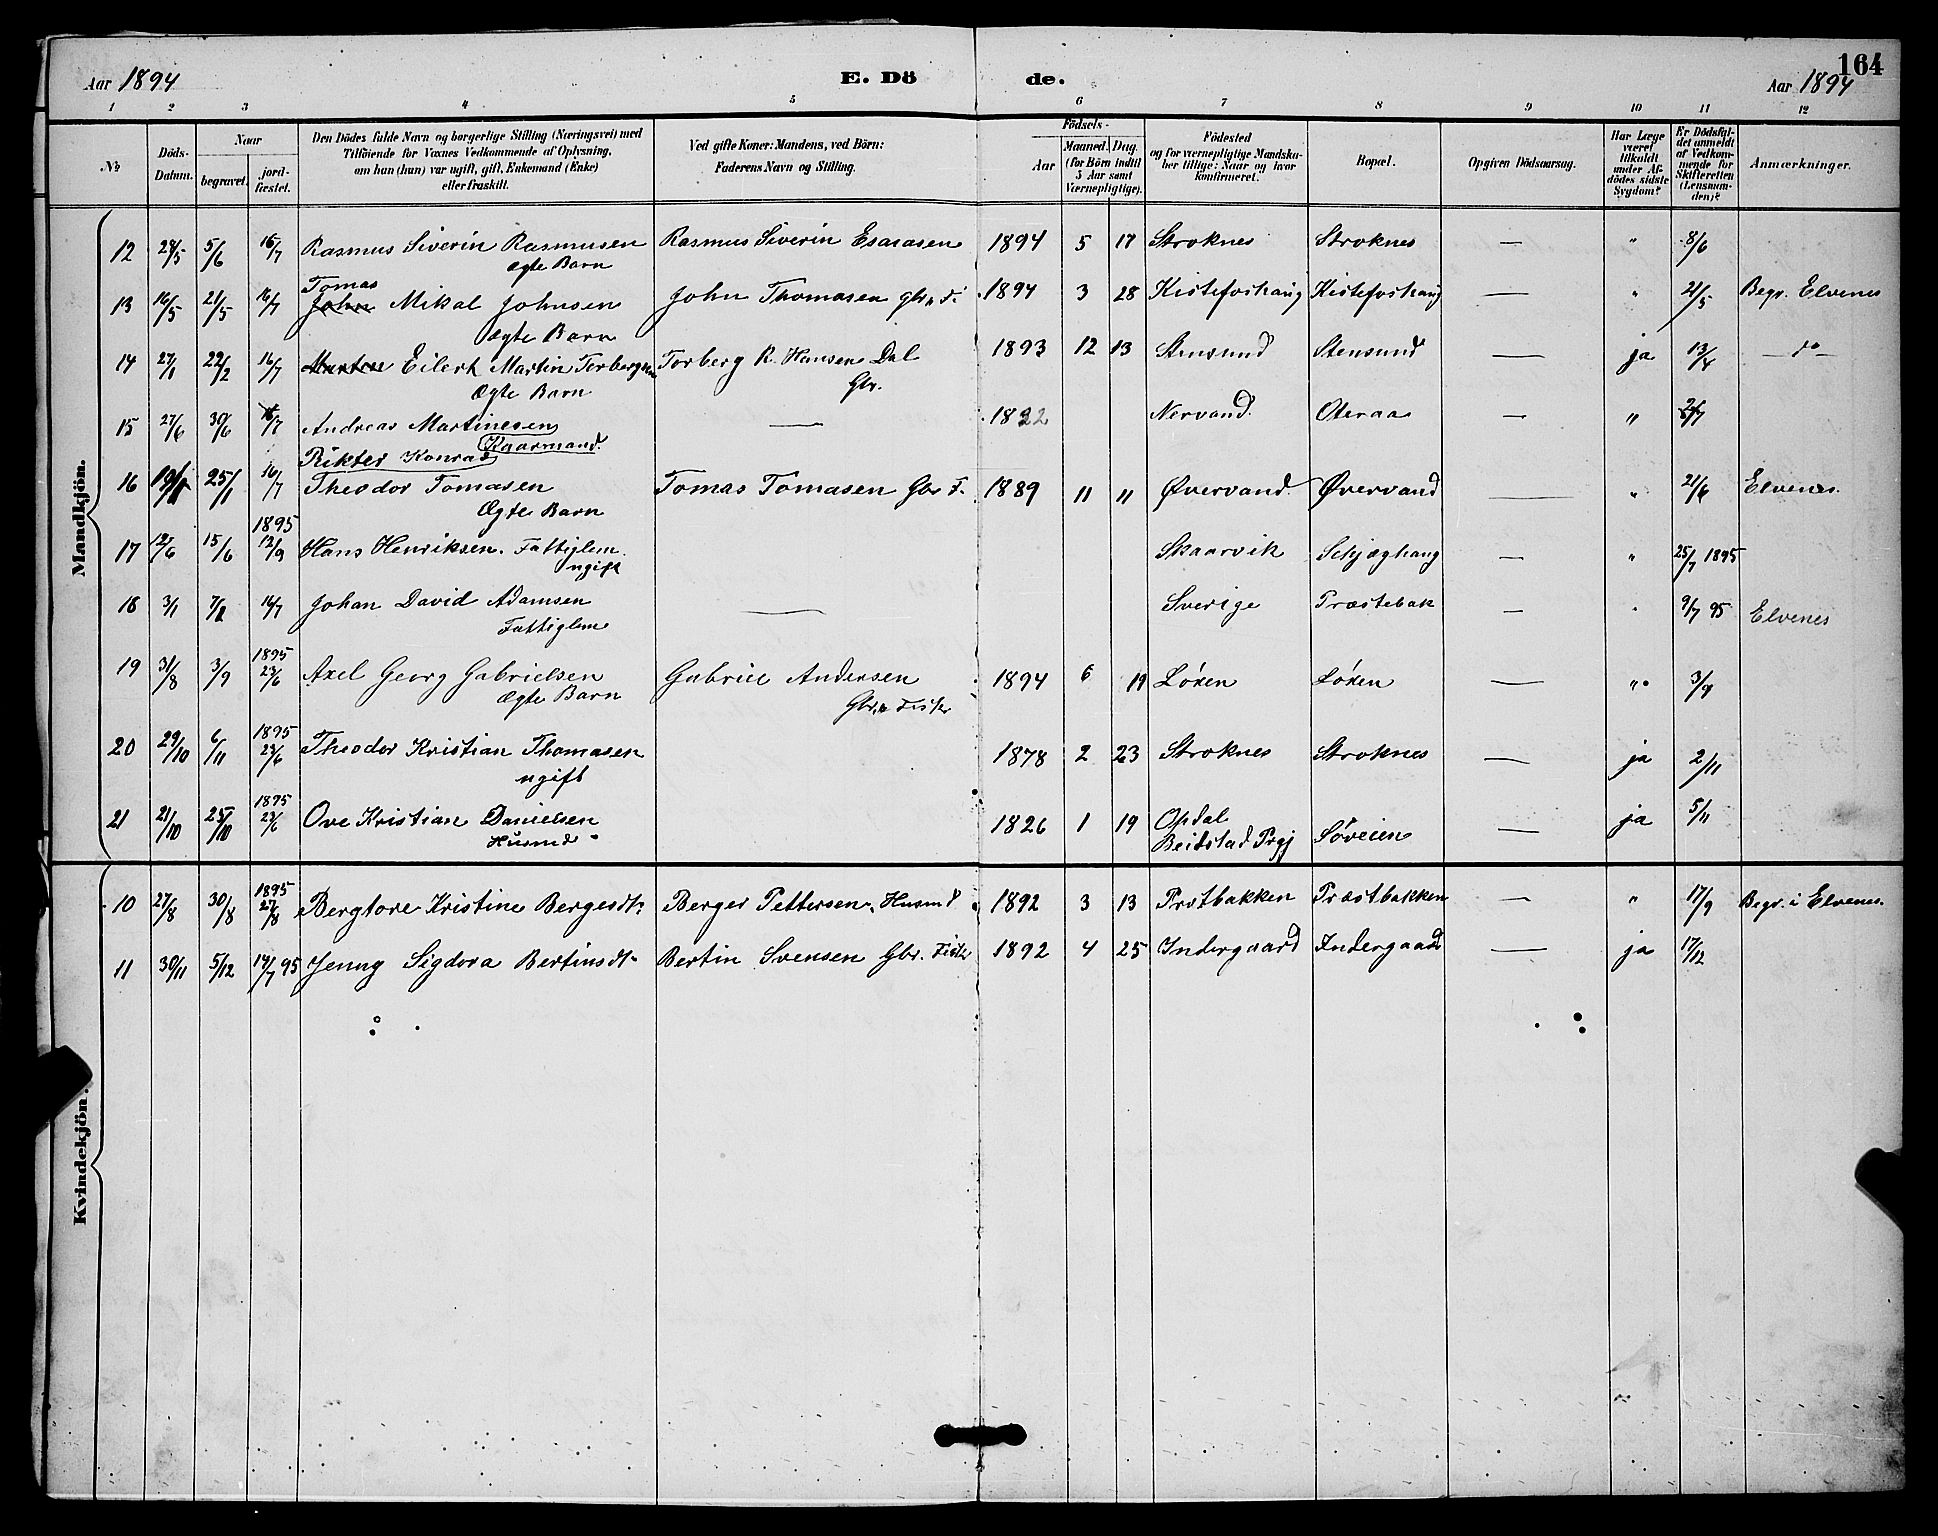 Aar 1894 E. Dö de. Aar 1894 164
1 2 3 4 5 6 7 8 9 10 11 12
No Döds-Datum. Naar begravet. jordfæstet. Den Dödes fulde Navn og borgerlige Stilling (Næringsvei) med Tilföiende for Voxnes Vedkommende af Oplysning, om han (hun) var ugift, gift, Enkemand (Enke) eller fraskilt. Ved gifte Koner: Mandens, ved Börn: Faderens Navn og Stilling. Födsels- Aar Maaned. Dag. (for Börn indtil 5 Aar samt Værnepligtige). Födested og for værnepligtige Mandskaber tillige: Naar og hvor konfirmeret. Bopæl. Opgiven Dödsaarsag. Har Læge været tilkaldt under Afdödes sidste Sygdom? Er Dödsfaldet anmeldt af Vedkommende for Skifteretten (Lensmanden)? Anmærkninger.
Mandkjön.
12 28/5 5/6 15/7 Rasmus Siverin Rasmusen Rasmus Siverin Esaiasen 1894 5 17 Stroknes Stroknes — " 8/6
ægte Barn
Tomas
13 16/5 21/5 16/7 John Mikal Johnsen John Thomasen gbr. F. 1894 3 28 Kistefoshaug Kistefoshaug — " 21/5 Begr. Elvenes
ægte Barn
14 27/1 22/2 16/7 Eilert Martin Torbergsen Torberg R. Hansen Dal 1893 12 13 Stensund Stensund — ja 13/4 — do —
Ægte Barn Gbr.
15 27/6 30/6 15/7 Andreas Martinesen — 1822 Nervand Oteraa — " 2/7
Kaarmand.
Rikter Konrad
16 25/1 16/7 Theodor Tomasen Tomas Tomasen Gbr F. 1889 11 11 Øvervand. Øvervand — " 21/6 Elvenes.
Ægte Barn
1895
17 12/6 15/6 12/9 Hans Henriksen. Fattiglem. Skaarvik Schjæghaug — " 25/7 1895
ugift
18 3/1 16/7 Johan David Adamsen — Sverige Præstebak — " 9/7 95 Elvenes
Fattiglem
1895
19 31/8 3/9 23/6 Axel Georg Gabrielsen Gabriel Andersen 1894 6 19 Løxen Løxen — " 3/9
Ægte Barn Gbr. Fisker
1895
20 29/10 6/11 23/6 Theodor Kristian Thomasen 1878 2 23 Stroknes Stroknes — ja 2/11
ugift
1895
21 21/10 25/10 23/6 Ove Kristian Danielsen 1826 1 19 Opdal Søveien — ja 5/11
Husmd Beidstad Prgj
Kvindekjön.
1895
10 27/8 30/8 27/8 Bergtore Kristine Bergesdt. Berger Pettersen. Husmd 1892 3 13 Prstbakken Præstbakken — " 17/9 Begr. i Elvenes.
11 30/11 5/12 14/7 95 Jenny Sigdora Bertinsdt. Bertin Svensen Gbr. Fisker 1892 4 25 Indergaard Indergaard — ja 17/12